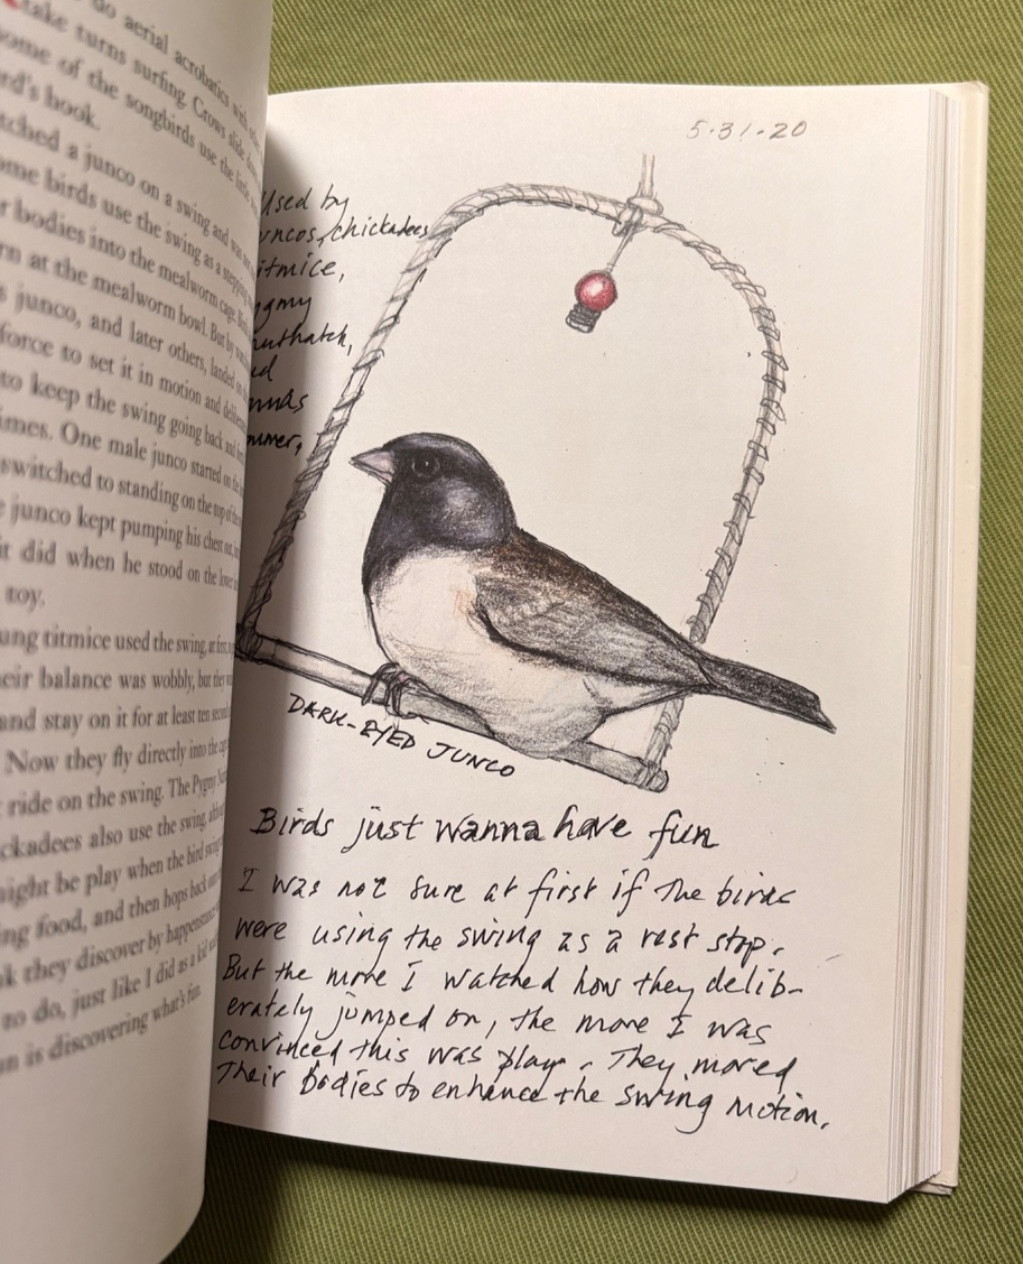 do aerial acrobatics with
take turns surfing. Crows slide
some of the songbirds use the little
rd's hook.
tched a junco on a swing and was
ome birds use the swing as a stepping
r bodies into the mealworm cage.
rn at the mealworm bowl. But by
s junco, and later others, landed on
force to set it in motion and
to keep the swing going back and
imes. One male junco started on the
switched to standing on the top of the
e junco kept pumping his chest out,
it did when he stood on the lower
toy.
ung titmice used the swing, at first,
eir balance was wobbly, but they
and stay on it for at least ten second
Now they fly directly into the
ride on the swing. The Pygmy
ckadees also use the swing,
ight be play when the bird
ng food, and then hops back
k they discover by happenstance
to do, just like I did as a kid
n is discovering what's fun.
5·31·20
Used by
uncos, chickadees
itmice,
ygmy
nuthatch,
nnas
mmer,
DARK-EYED JUNCO
Birds just wanna have fun
I was not sure at first if the birds
were using the swing as a rest stop.
But the more I watched how they delib-
erately jumped on, the more I was
convinced this was play. They moved
their bodies to enhance the swing motion.